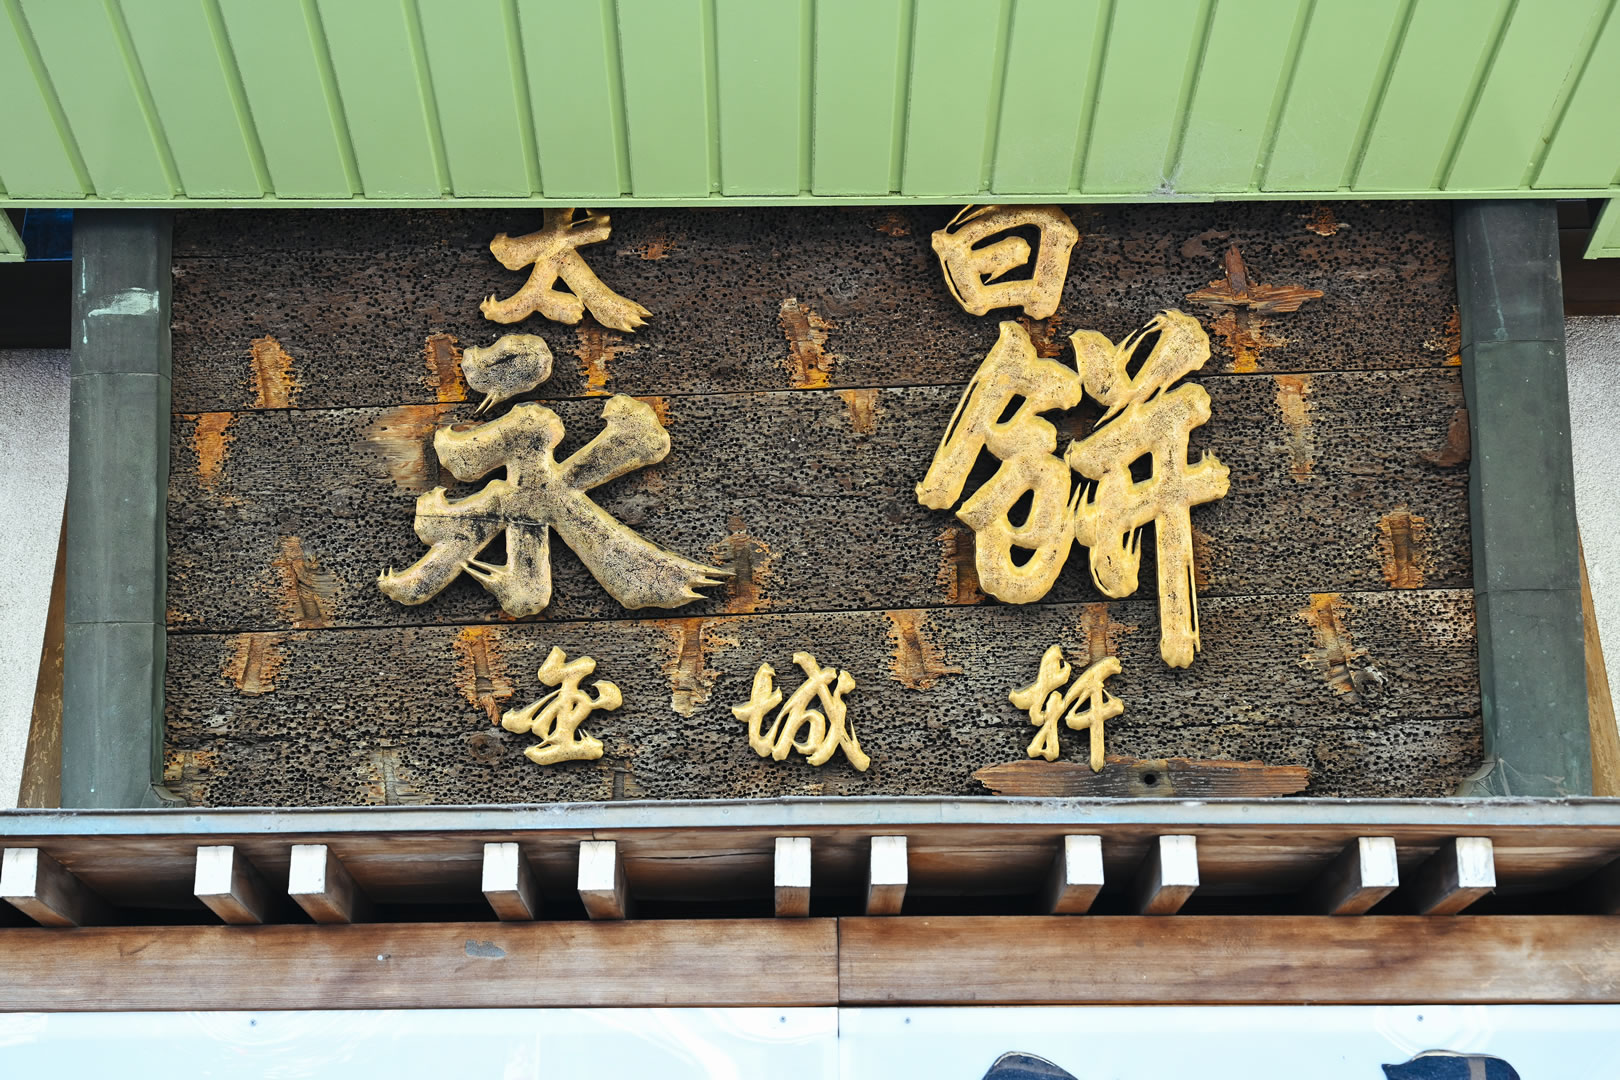 太白
永餅
金城軒